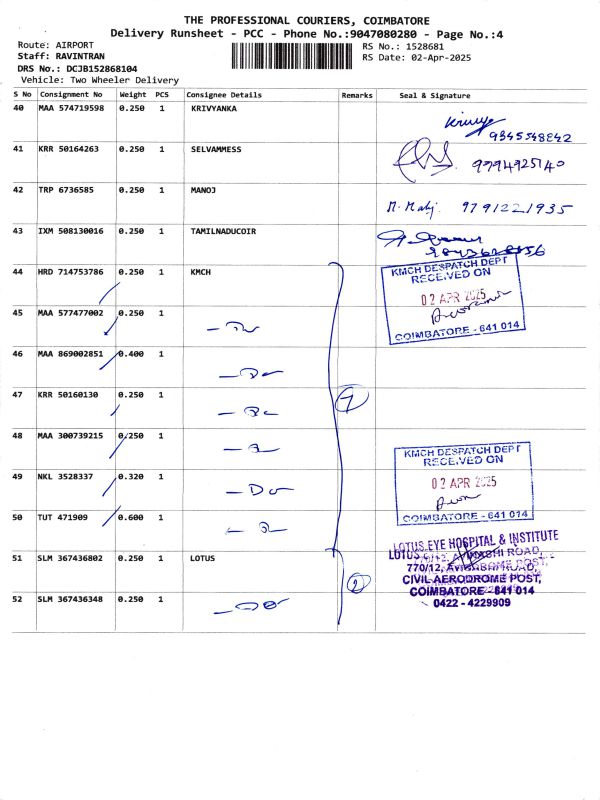 THE PROFESSIONAL COURIERS, COIMBATORE
Delivery Runsheet - PCC - Phone No.:9047080280 - Page No.:4
Route: AIRPORT
RS No.: 1528681
Staff: RAVINTRAN
RS Date: 02-Apr-2025
DRS No.: DCJB152868104
Vehicle: Two Wheeler Delivery
S No Consignment No Weight PCS Consignee Details Remarks Seal & Signature
40 MAA 574719598 0.250 1 KRIVYANKA
9345548842
41 KRR 50164263 0.250 1 SELVAMMESS
9794925140
42 TRP 6736585 0.250 1 MANOJ
9791221935
43 IXM 508130016 0.250 1 TAMILNADUCOIR
44 HRD 714753786 0.250 1 KMCH
KMCH DESPATCH DEPT
RECEIVED ON
02 APR 2025
COIMBATORE - 641 014
45 MAA 577477002 0.250 1
46 MAA 869002851 0.400 1
47 KRR 50160130 0.250 1
7
48 MAA 300739215 0.250 1
KMCH DESPATCH DEPT
RECEIVED ON
02 APR 2025
COIMBATORE - 641 014
49 NKL 3528337 0.320 1
50 TUT 471909 0.600 1
51 SLM 367436802 0.250 1 LOTUS
2
LOTUS EYE HOSPITAL & INSTITUTE
770/12, AVINASHI ROAD,
CIVIL AERODROME POST,
COIMBATORE - 641 014
0422 - 4229909
52 SLM 367436348 0.250 1